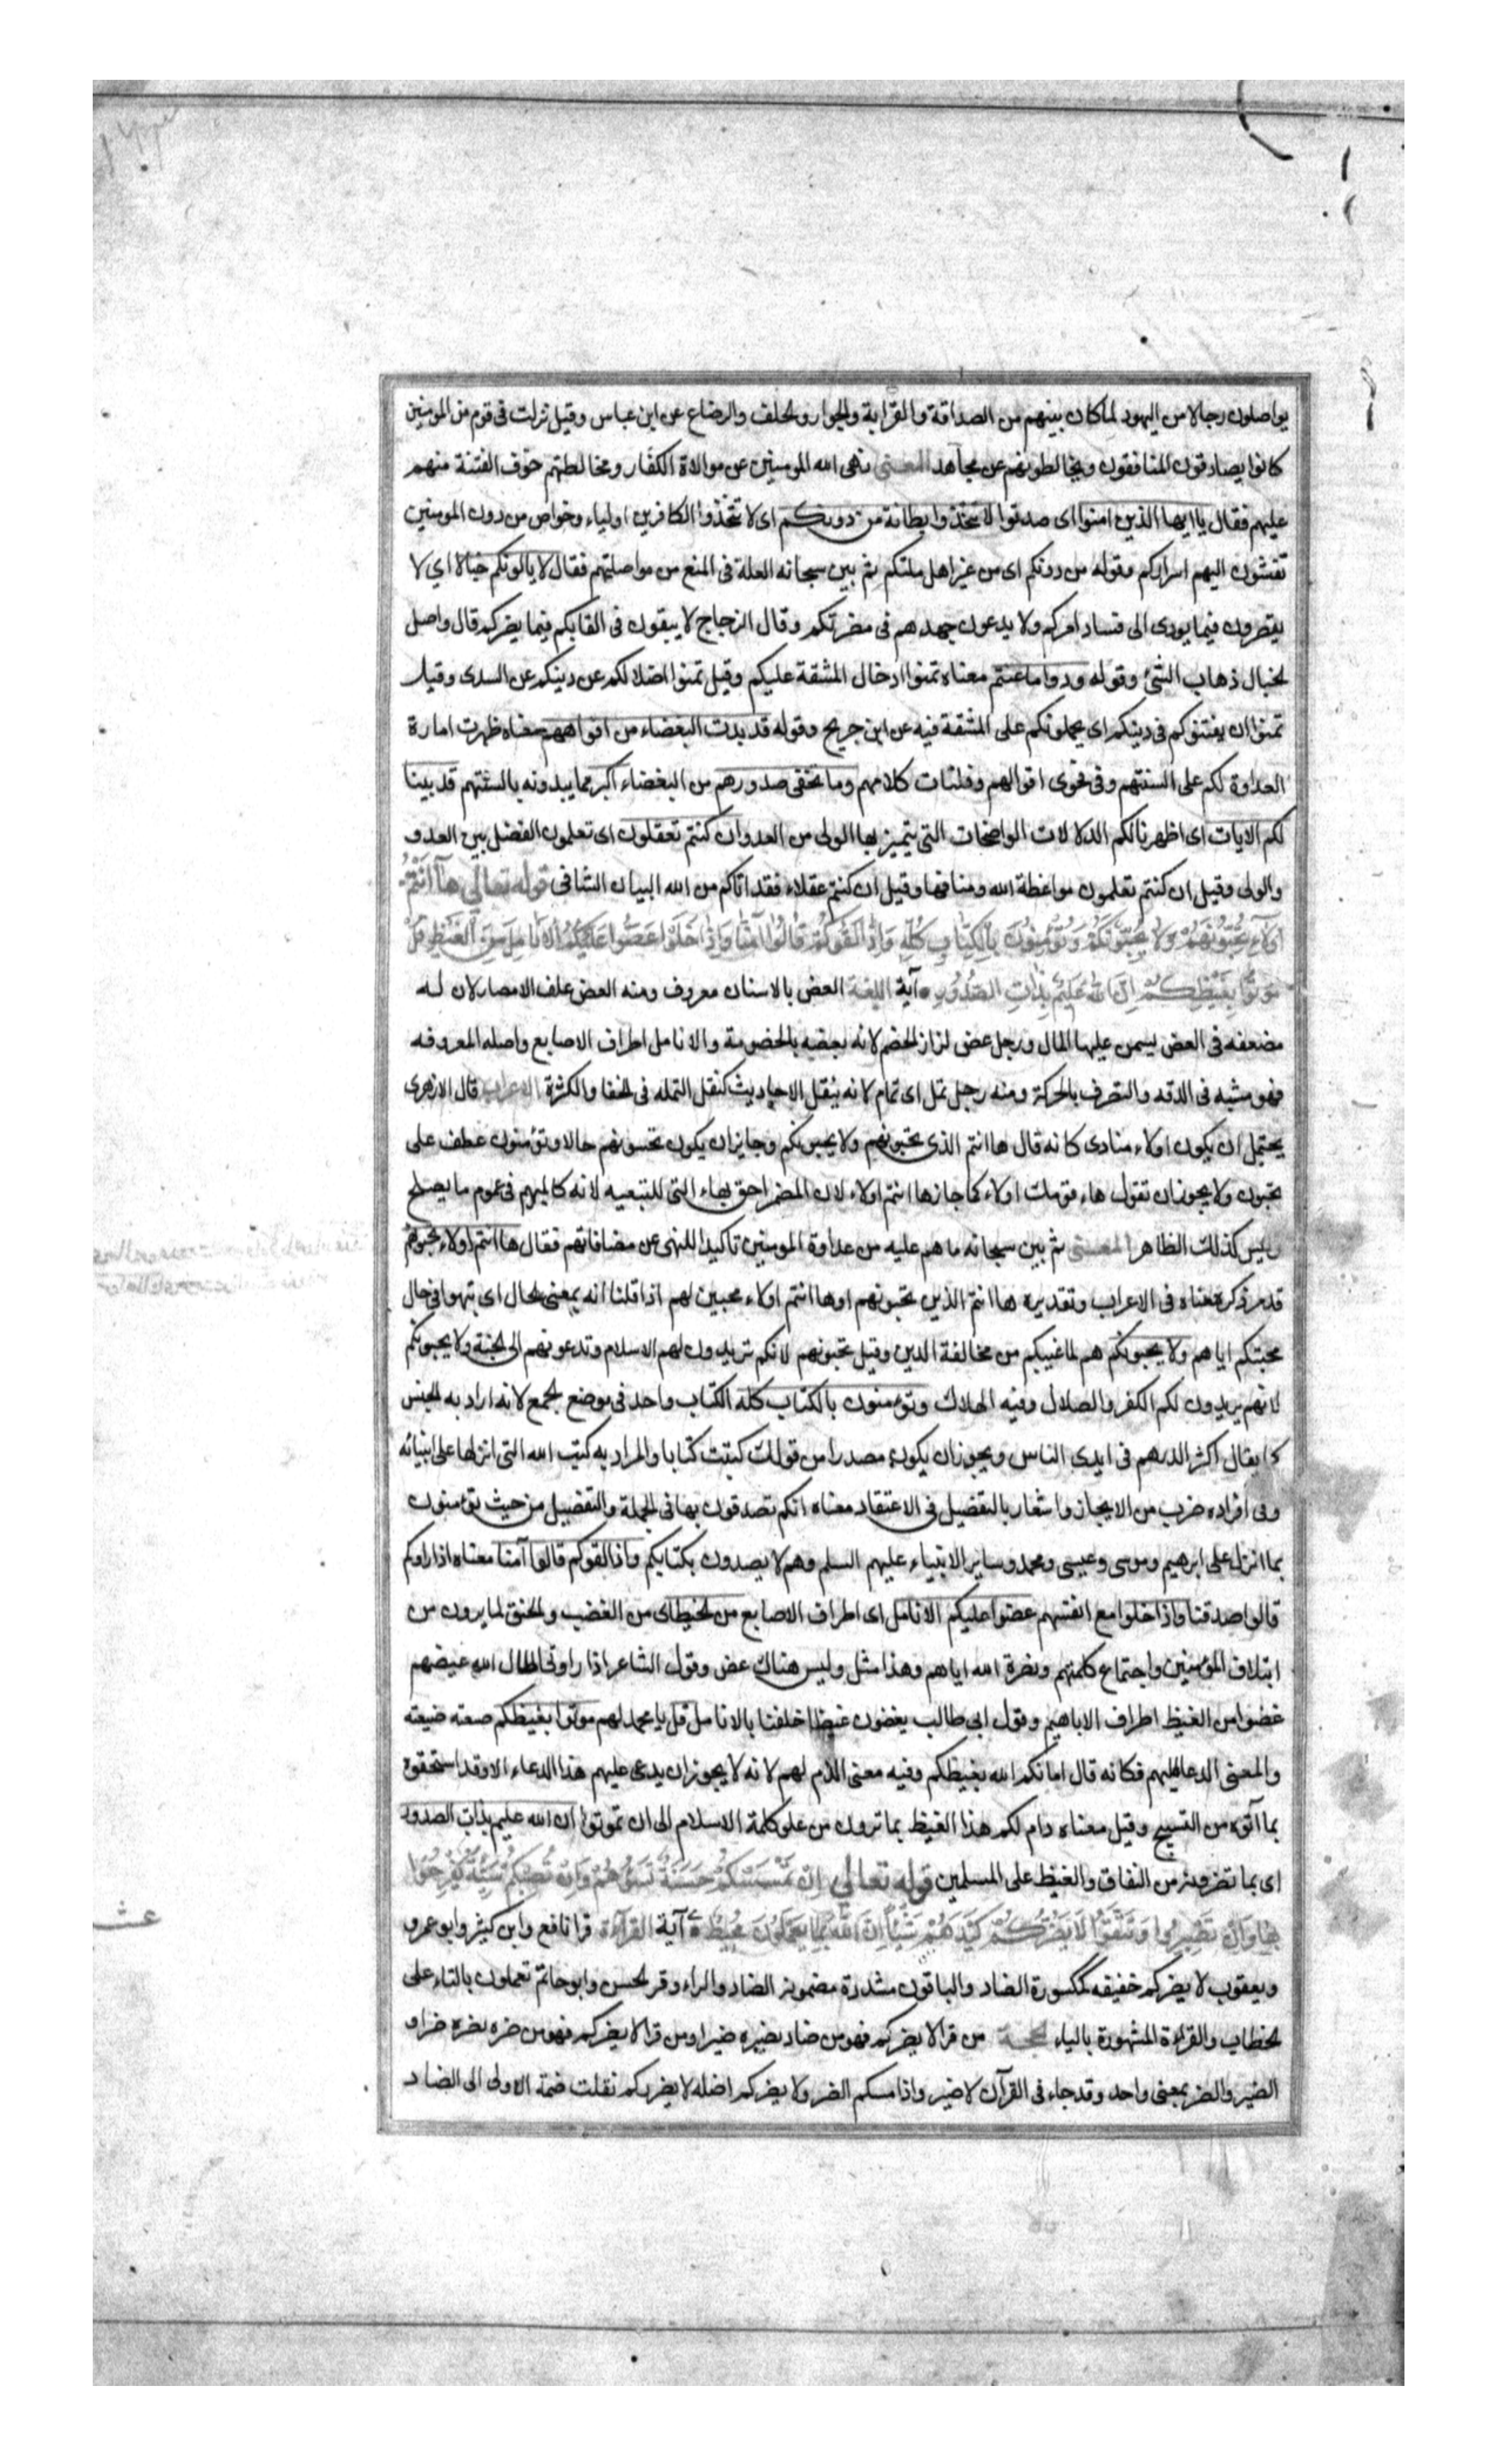 يواصلون رجالا من اليهود لما كان بينهم من الصداقة والقرابة والجوار والحلف والرضاع عن ابن عباس وقيل نزلت فى قوم من المومنين
كانوا يصادقون المنافقون ويخالطونهم عن مجاهد المعنى نهى الله المومنين عن موالاة الكفار ومخالطتهم خوف الفتنة منهم
عليهم فقال يا ايها الذين امنوا اى صدقوا لا تتخذوا بطانة من دونكم اى لا تتخذوا الكافرين اولياء وخواص من دون المومنين
تفشون اليهم اسراركم وقوله من دونكم اى من غير اهل ملتكم ثم بين سبحانه العلة فى المنع من مواصلتهم فقال لا يالونكم خبالا اي لا
يقصرون فيما يودى الى فساد امركم ولا يدعون جهدهم فى مضرتكم وقال الزجاج لا يبقون فى القايكم فيما يضركم قال واصل
الخبال ذهاب الشئ وقوله ودوا ما عنتم معناه تمنوا ادخال المشقة عليكم وقيل تمنوا اضلالكم عن دينكم عن السدى وقيل
تمنوا ان يفتنوكم فى دينكم اى يحملونكم على المشقة فيه عن ابن جريح وقوله قد بدت البغضاء من افواههم معناه ظهرت امارة
العداوة لكم على السنتهم وفى فحوى اقوالهم وفلتات كلامهم وما تخفى صدورهم من البغضاء اكبر مما يبدونه بالسنتهم قد بينا
لكم الايات اى اظهرنا لكم الدلالات الواضحات التى يتميز بها الولى من العدو ان كنتم تعقلون اى تعلمون الفضل بين العدو
والولى وقيل ان كنتم تعلمون مواعظة الله ومنافعها وقيل ان كنتم عقلاء فقد اتاكم من الله البيان الشافى قوله تعالي هَآ اَنْتُمْ
اُولَآءِ تُحِبُّونَهُمْ وَلَا يُحِبُّونَكُمْ وَتُؤْمِنُونَ بِالْكِتَابِ كُلِّهِ وَاِذَا لَقُوكُمْ قَالُوا آمَنَّا وَاِذَا خَلَوْا عَضُّوا عَلَيْكُمُ الْاَنَامِلَ مِنَ الْغَيْظِ قُلْ
مُوتُوا بِغَيْظِكُمْ اِنَّ اللّٰهَ عَلِيمٌ بِذَاتِ الصُّدُورِ آية اللغة العض بالاسنان معروف ومنه العض علف الامصار لان له
مضعفه فى العض يسمن عليها المال ورجل عض لزاز الخصم لانه يعضه بالخصومة والانامل اطراف الاصابع واصله المعروفه
فهو مشبه فى الدقه والتصرف بالحركة ومنه رجل نمل اى نمام لانه ينقل الاحاديث كنقل النمله فى الخفا والكثرة الاعراب قال الازهرى
يحتمل ان يكون اولاء منادى كانه قال ها انتم الذى تحبونهم ولا يحبونكم وجايز ان يكون تحبونهم حالا وتؤمنون عطف على
تحبون ولا يجوز ان تقول هاء قومك اولاء كما جاز ها انتم اولاء لان المضمر احق بهاء التى للتنبيه لانه كالمبهم فى عموم ما يصلح
وليس كذلك الظاهر المعنى ثم بين سبحانه ما هم عليه من عداوة المومنين تاكيدا للنهى عن مصافاتهم فقال ها انتم اولاء تحبونهم
قد مر ذكر معناه فى الاعراب وتقديره ها انتم الذين تحبونهم او ها انتم اولاء محبين لهم اذا قلنا انه بمعنى الحال اى تنهوا فى حال
محبتكم اياهم ولا يحبونكم هم لما غيبكم من مخالفة الدين وقيل تحبونهم لانكم تريدون لهم الاسلام وتدعونهم الى الجنة ولا يحبونكم
لانهم يريدون لكم الكفر والضلال وفيه الهلاك وتؤمنون بالكتاب كله الكتاب واحد فى موضع الجمع لانه اراد به الجنس
كما يقال اكثر الدرهم فى ايدى الناس ويجوز ان يكون مصدرا من قولك كتبت كتابا والمراد به كتب الله التى انزلها على انبيائه
وفى افراده ضرب من الايجاز واشعار بالتفضيل فى الاعتقاد معناه انكم تصدقون بها فى الجملة والتفصيل من حيث تؤمنون
بما انزل على ابرهيم وموسى وعيسى ومحمد وساير الانبياء عليهم السلم وهم لا يصدون بكتابكم واذا لقوكم قالوا آمنا معناه اذا راوكم
قالوا صدقنا واذا خلوا مع انفسهم عضوا عليكم الانامل اى اطراف الاصابع من الغيظ اى من الغضب والحنق لما يرون من
ايتلاف المؤمنين واجتماع كلمتهم ونصرة الله اياهم وهذا مثل وليس هناك عض وقول الشاعر اذا راونى اطال الله غيضهم
عضوا من الغيظ اطراف الاباهيم وقول ابى طالب يعضون غيظا خلفنا بالانامل قل يا محمد لهم موتوا بغيظكم صيغته صيغة
والمعنى الدعا عليهم فكانه قال اماتكم الله بغيظكم وفيه معنى الذم لهم لانه لا يجوز ان يدعى عليهم هذا الدعاء الا وقد استحقوه
بما اتوه من القبيح وقيل معناه دام لكم هذا الغيظ بما ترون من علو كلمة الاسلام الى ان تموتوا ان الله عليم بذات الصدور
اى بما تضمرونه من النفاق والغيظ على المسلمين قوله تعالي اِنْ تَمْسَسْكُمْ حَسَنَةٌ تَسُؤْهُمْ وَاِنْ تُصِبْكُمْ سَيِّئَةٌ يَفْرَحُوا
بِهَا وَاِنْ تَصْبِرُوا وَتَتَّقُوا لَا يَضُرُّكُمْ كَيْدُهُمْ شَيْئًا اِنَّ اللّٰهَ بِمَا يَعْمَلُونَ مُحِيطٌ آية القراءة قرا نافع وابن كثير وابو عمرو
ويعقوب لا يضركم خفيفه مكسورة الضاد والباقون مشددة مضمومة الضاد والراء وقر الحسن وابو حاتم تعملون بالتاء على
الخطاب والقراءة المشهورة بالياء الحجة من قرا لا يضركم فهو من ضاد يضيره ضيرا ومن قرا لا يضركم فهو من ضره يضره ضرا و
الضير والضر بمعنى واحد وقد جاء فى القرآن لا ضير واذا مسكم الضر ولا يضركم اصله لا يضرركم نقلت ضمة الاولى الى الضاد